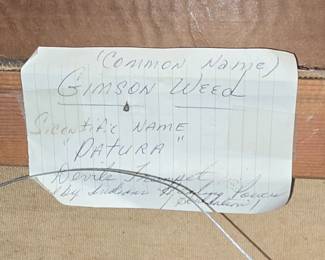 (Common Name)
Gimson Weed
Scientific Name
"Datura"
Devils Trumpet
(by Indians Healing Power